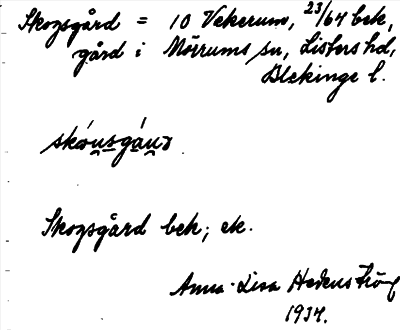 Skogsgård = 10 Vekerum, 23/64 bek,
gård i Mörrums sn, Listers hd,
Blekinge l.
skóusgáur
Skogsgård bek; etc.
Anna-Lisa Hedenström
1934.